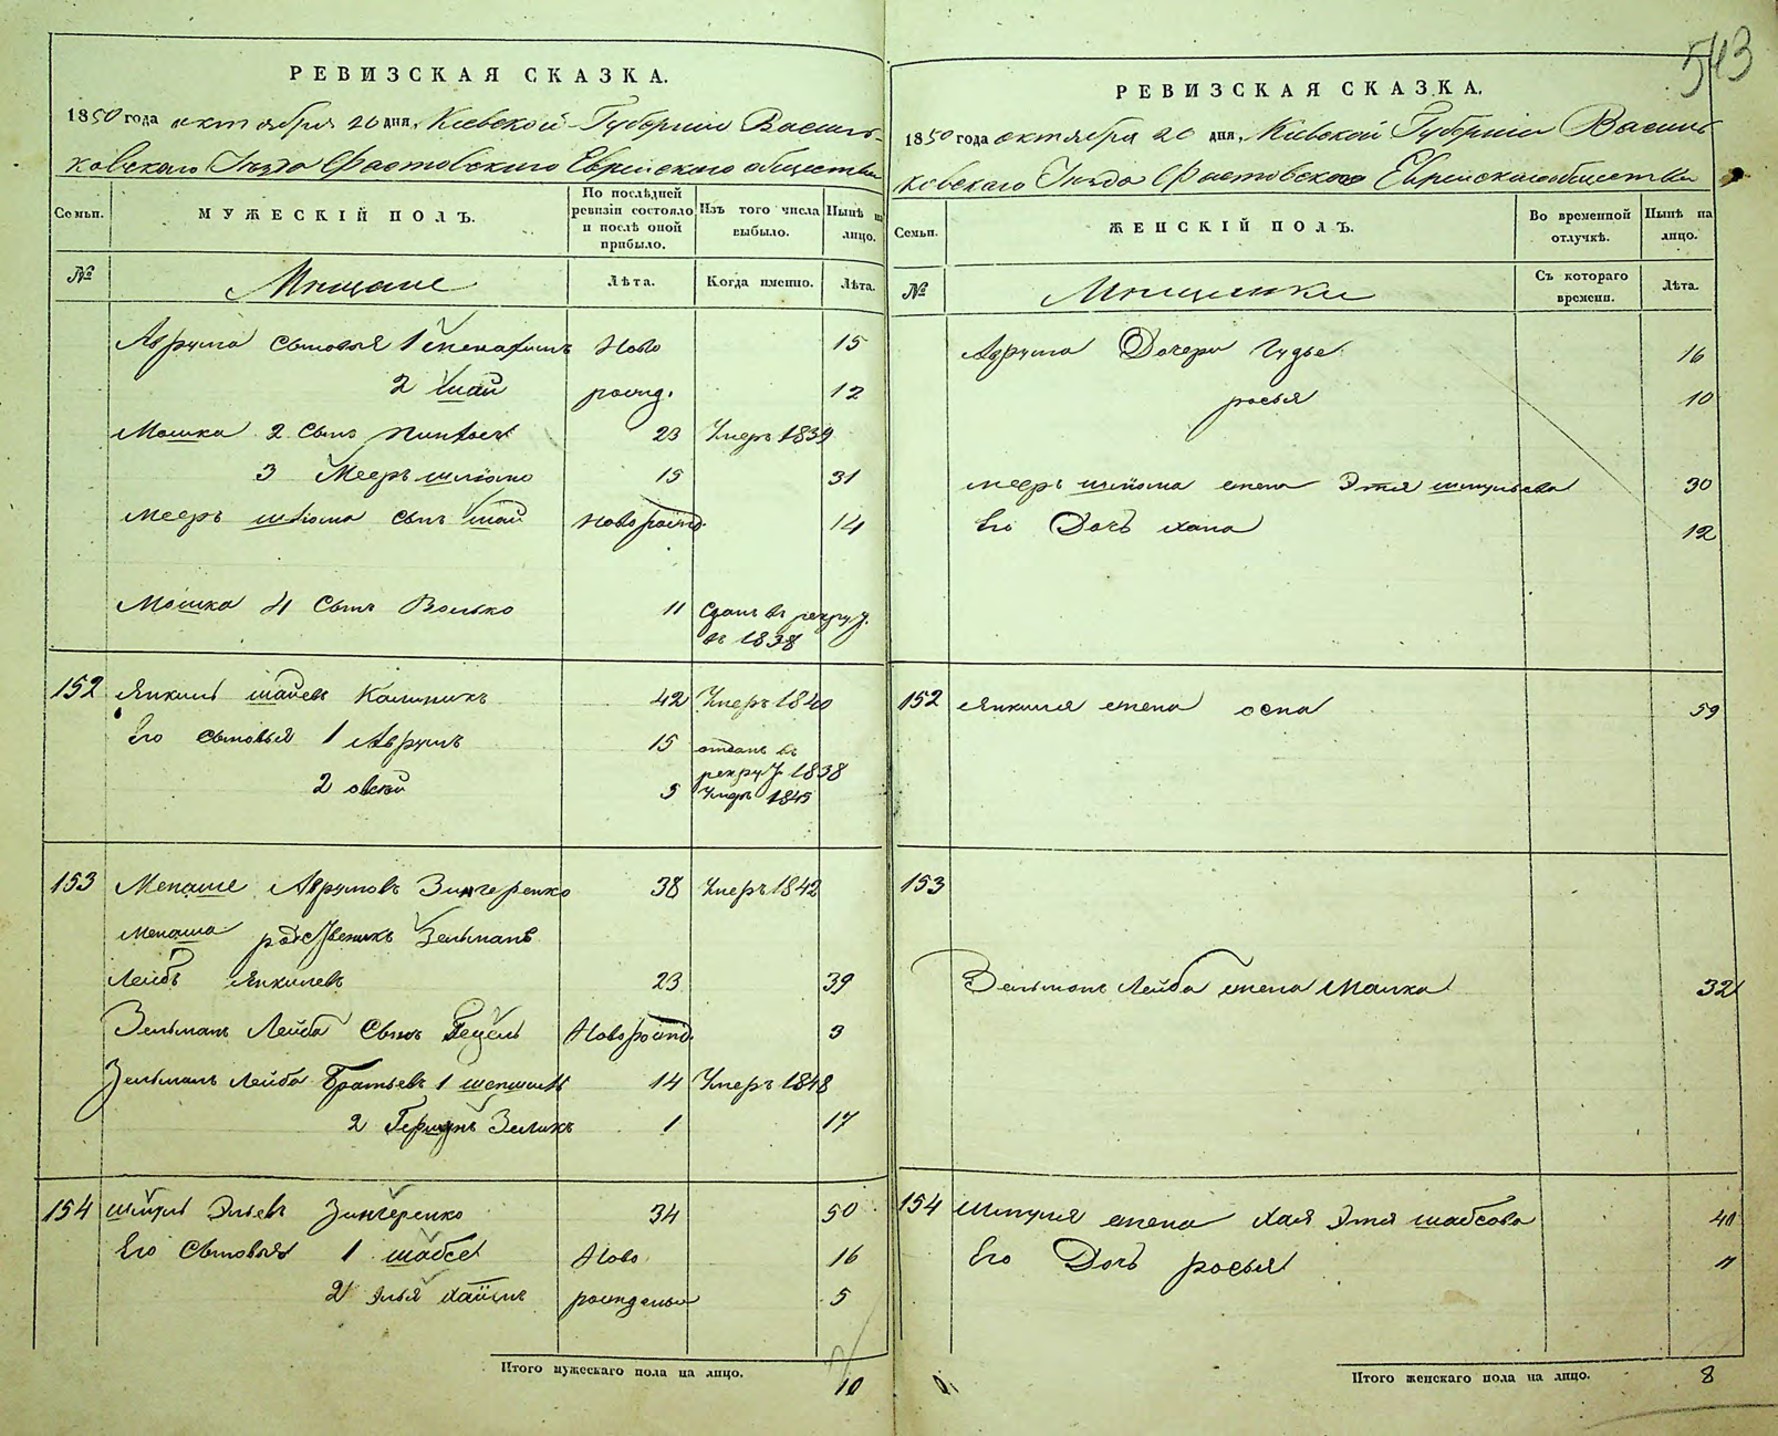 РЕВИЗСКАЯ СКАЗКА.
1850 года октября 20 дня, Киевской Губернии Василь-
ковскаго Уѣзда Фастовскаго Еврейскаго общества
Семьи.
МУЖЕСКІЙ ПОЛЪ.
По послѣдней ревизіи состояло и послѣ оной прибыло.
Изъ того числа выбыло.
Нынѣ на лицо.
№
Мещане
Лѣта.
Когда именно.
Лѣта.
Аврума сыновья 1 Ново 15
2 Шай рожд. 12
Мошка 2 Сынъ 23 Умеръ 1839
3 Мееръ шлiома 15 31
Мееръ шлiома сынъ шай новорожд. 14
Мошка 4 Сынъ Волько 11 Сданъ въ рекру.
въ 1838
152 Янкель шаевъ Калникъ 42 Умеръ 1840
Его сыновья 1 Аврумъ 15 отданъ въ
рекру 1838
2 овсей 5 Умеръ 1845
153 Менаше Аврумовъ Зингеренко 38 Умеръ 1842
Менаша родственикъ Зельманъ
Лейбъ Янкилевъ 23 39
Зельманъ Лейба Сынъ Бецель Новорожд. 3
Зельманъ Лейба Братьевъ 1 14 Умеръ 1848
2 Гершонъ Зеликъ 1 17
154 шмуль Эльевъ Зингеренко 34 50
Его Сыновья 1 шабсе Ново 16
2 элья хаимъ рожденны 5
Итого мужескаго пола на лицо.
10
543
РЕВИЗСКАЯ СКАЗКА.
1850 года октября 20 дня, Киевской Губернии Василь
ковскаго Уѣзда Фастовскаго Еврейскаго общества
Семьи.
ЖЕНСКІЙ ПОЛЪ.
Во временной отлучкѣ.
Нынѣ на лицо.
№
Мещанки
Съ котораго времени.
Лѣта.
Аврума Дочери Гудье 16
росья 10
мееръ шлiома жена Этя шмульева 30
Его Дочъ хана 12
152 Янкиля жена осна 59
153
Зельманъ Лейба жена Малка 32
154 Шмуля жена Хая Этя шабсова 40
Его Дочъ росья 11
Итого женскаго пола на лицо.
8